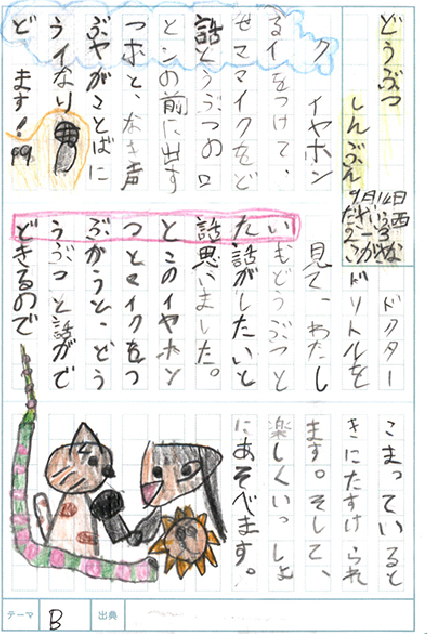 どうぶつ
しんぶん
9月14日
どうぶつと話せる
イヤホンマイク
イヤホン
をつけて、
マイクをど
うぶつの口
の前に出す
と、なき声
がことばに
なり
ます！
どうぶつと話たい
ドクター
ドリトルを
見て、わたし
もどうぶつと
話がしたいと
思いました。
このイヤホン
とマイクをつ
かうと、どう
ぶつと話がで
きるので
こまっていると
きにたすけられ
ます。そして、
楽しくいっしょ
にあそべます。
テーマ B 出典